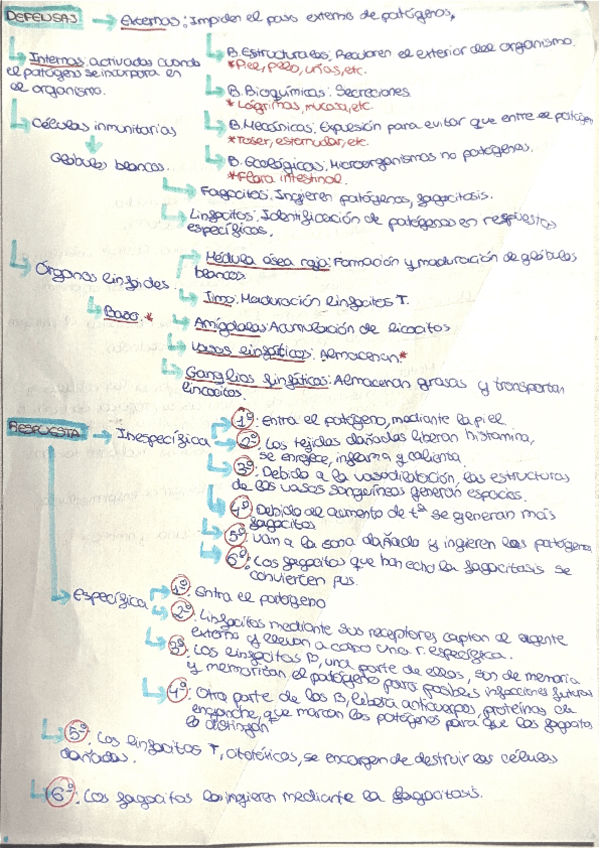 DEFENSAS → Externas: Impiden el paso externo de patógenos.
Internas: activadas cuando
el patógeno se incorpora en
el organismo.
B. Estructurales: Recubren el exterior del organismo.
*Piel, pelo, uñas, etc.
B. Bioquímicas: Secreciones
*Lágrimas, mucosa, etc.
B. Mecánicas: Expulsión para evitar que entre el patógeno
*Toser, estornudar, etc.
B. Ecológicas: Microorganismos no patógenos.
*Flora intestinal.
Células inmunitarias
Glóbulos blancos.
Fagocitos: Ingieren patógenos, fagocitosis.
Linfocitos: Identificación de patógenos en respuestas
específicas.
Órganos linfoides.
Médula ósea roja: Formación y maduración de glóbulos
blancos
Timo: Maduración linfocitos T.
Bazo.*
Amígdalas: Acumulación de
Vasos linfáticos: Almacenan*
Ganglios linfáticos: Almacenan grasas y transportan
RESPUESTA → Inespecífica
1º: Entra el patógeno, mediante la piel.
2º: Los tejidos dañados liberan histamina,
se enrojece, inflama y calienta.
3º: Debido a la vasodilatación, las estructuras
de los vasos sanguíneos generan espacios.
4º: Debido al aumento de tª se generan más
fagocitos
5º: Van a la zona dañada y ingieren los patógenos
6º: Los fagocitos que han echo la fagocitosis se
convierten pus.
Específica
1º: Entra el patógeno
2º: Linfocitos mediante sus receptores captan el agente
externo y llevan a cabo una r. específica.
3º: Los linfocitos B, una parte de ellos, son de memoria
y memorizan el patógeno para posibles infecciones futuras
4º: Otra parte de los B, libera anticuerpos, proteínas de
enganche, que marcan los patógenos para que los fagocitos
lo distingan
5º: Los linfocitos T, citotóxicos, se encargan de destruir las células
dañadas.
6º: Los fagocitos lo ingieren mediante la fagocitosis.